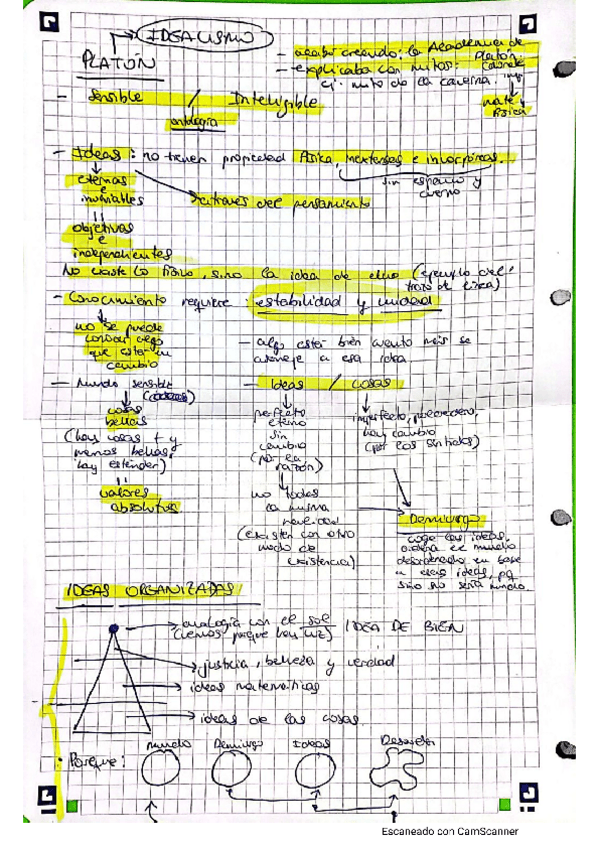 IDEALISMO
PLATÓN
- acabó creando: la Academia de Platón.
- explicaba con mitos:
ej. mito de la caverna. imp
mate y física
- Sensible / Inteligible
ontología
- Ideas: no tienen propiedad física, inextensas e incorpóreas.
sin espacio y cuerpo
eternas e invariables
a través del pensamiento
objetivas e independientes
No existe lo físico, sino la idea de ello (ejemplo del trozo de tiza)
- Conocimiento requiere: estabilidad y unidad
no se puede conocer algo que esté en cambio
- algo está bien cuanto más se asemeje a esa idea.
- Mundo sensible
cosas bellas
(hay cosas + y menos bellas, hay extender)
valores absolutos
- Ideas / cosas
perfecto
eterno
sin cambio
(por la razón)
imperfecto, perecedero,
hay cambio
(por los sentidos)
no todas
la misma
realidad
(existen con otro
modo de
existencia)
Demiurgo
coge las ideas,
ordena el mundo
desordenado en base
a esas ideas, pq
sino no sería mundo.
IDEAS ORGANIZADAS
analogía con el sol
(vemos porque hay luz)
IDEA DE BIEN
justicia, belleza y verdad
ideas matemáticas
ideas de las cosas.
· Porque:
mundo
Demiurgo
Ideas
Escaneado con CamScanner